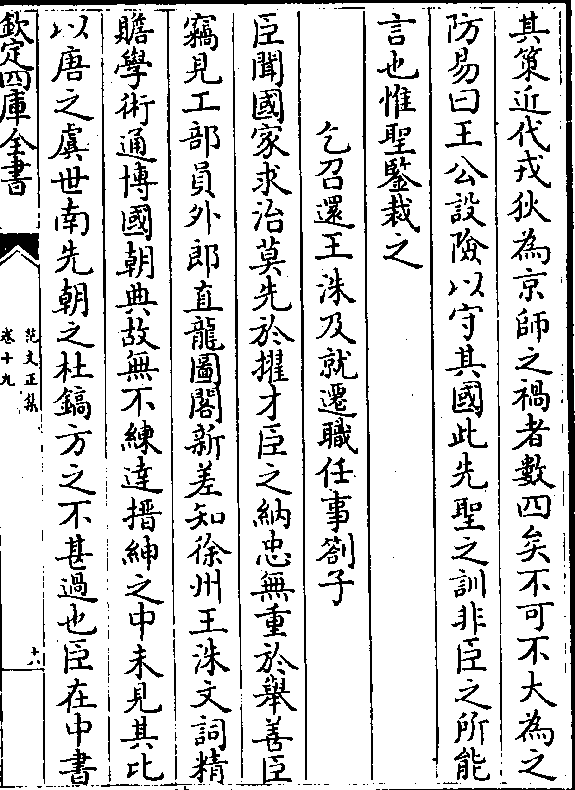 其策近代戎狄為京師之禍者數四矣不可不大為之
防易曰王公設險以守其國此先聖之訓非臣之所能
言也惟聖鑒裁之
乞召還王洙及就遷職任事劄子
臣聞國家求治莫先於擢才臣之納忠無重於舉善臣
竊見工部員外郎直龍圖閣新差知徐州王洙文詞精
贍學術通博國朝典故無不練達搢紳之中未見其比
以唐之虞世南先朝之杜鎬方之不甚過也臣在中書
欽定四庫全書
范文正集
卷十九
十六